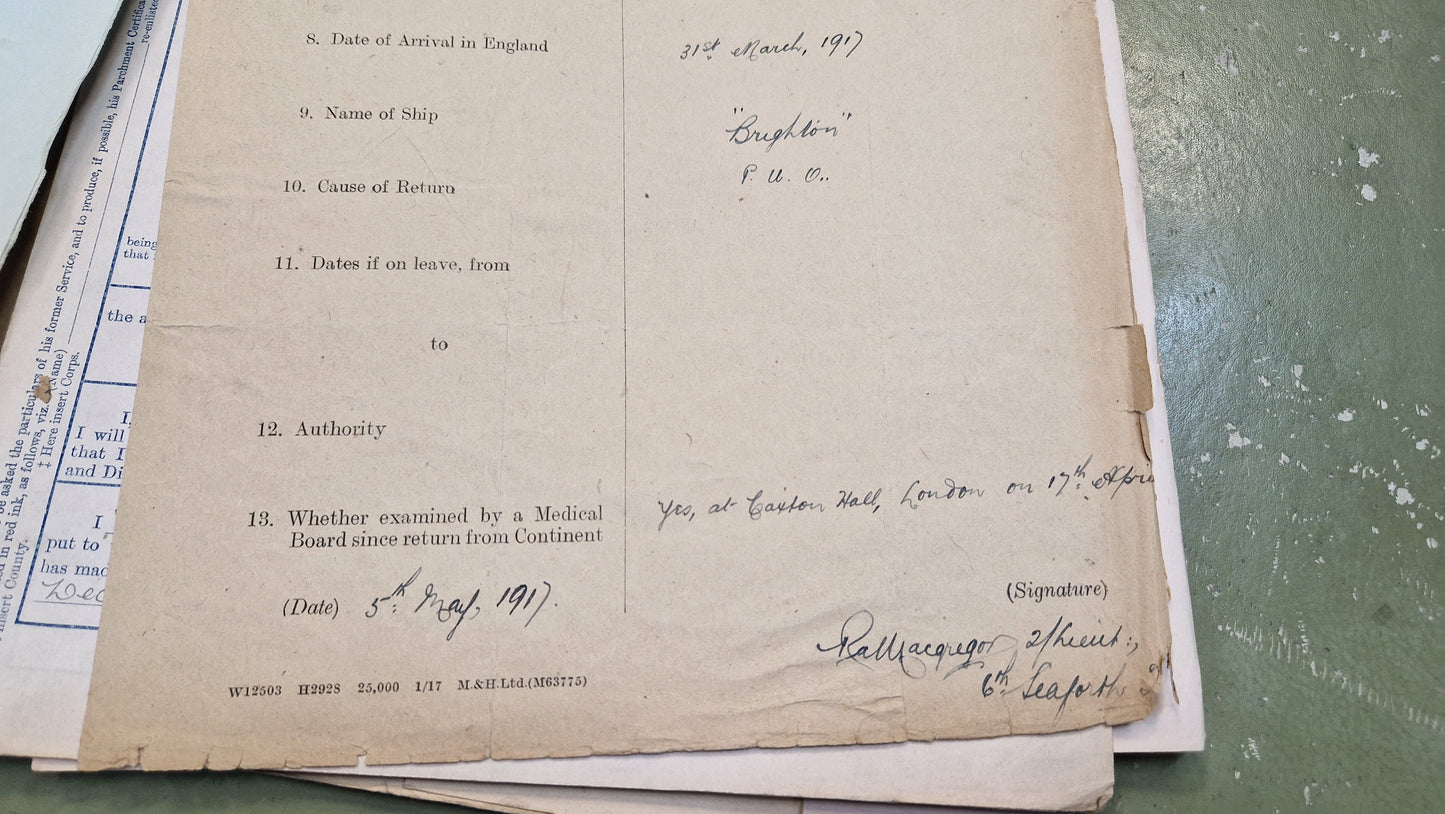 8. Date of Arrival in England 31st March, 1917
9. Name of Ship "Brighton"
10. Cause of Return P. U. O..
11. Dates if on leave, from
to
12. Authority
13. Whether examined by a Medical Yes, at Caxton Hall, London on 17th Apri
Board since return from Continent
(Date) 5th May, 1917.
(Signature)
Macgregor 2/Lieut:,
6th Seaforth
W12503 H2928 25,000 1/17 M.&H.Ltd.(M63775)
re-enlisted
be asked the particulars of his former Service, and to produce, if possible, his Parchment Certifica
ed in red ink, as follows, viz. (Name)
‡ Here insert Corps.
insert County.
being
that
the a
I,
I will
that I
and Di
I
put to
has mad
Dec